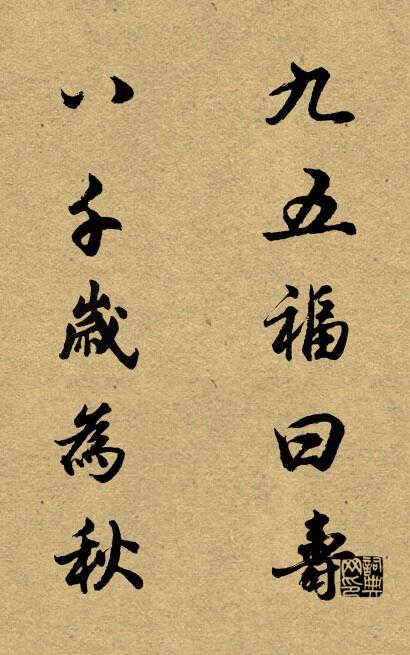 九五福曰壽
八千歲為秋
詞典
网印